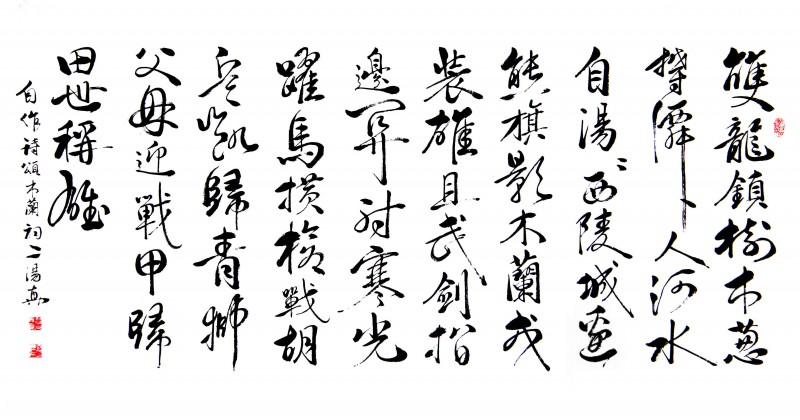 雙龍鎖樹木蔥
人河水
自湯〻西陵城邊
熊旗影木蘭戎
裝雄且武劍指
邊關射寒光
躍馬橫槍戰胡
兵凱歸青獅
父母迎戰甲歸
田世稱雄
自作詩頌木蘭詞二湯真